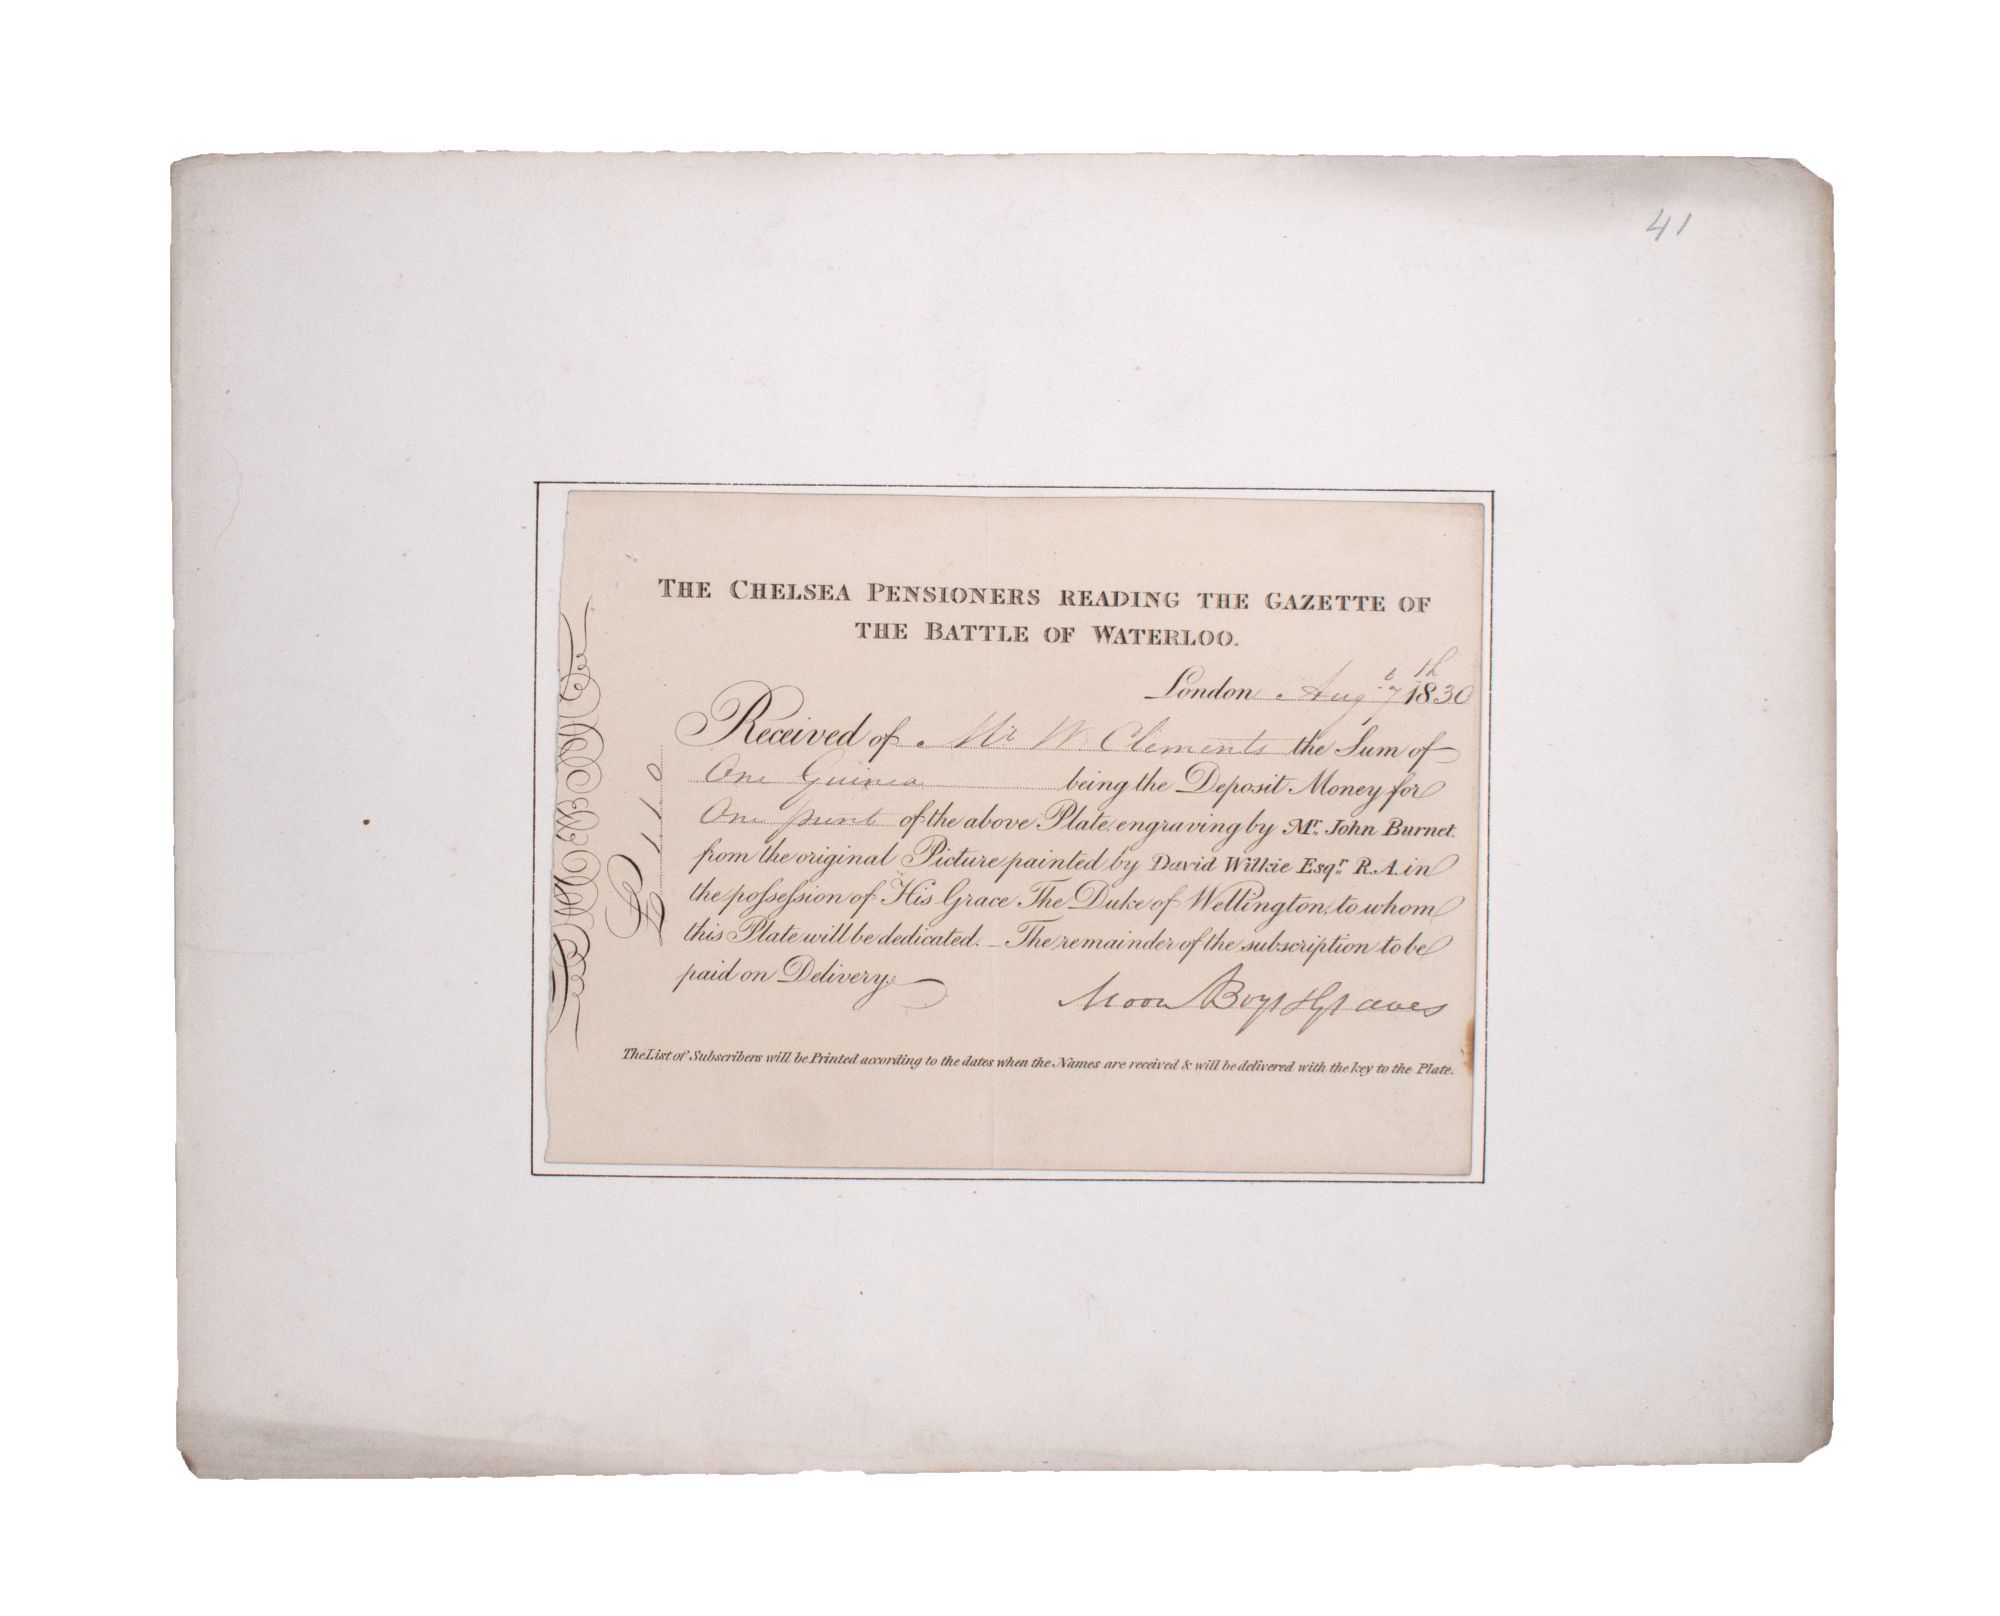 41
THE CHELSEA PENSIONERS READING THE GAZETTE OF
THE BATTLE OF WATERLOO.
London Augt 7th 1830
Received of Mr W Clements the Sum of
One Guinea being the Deposit Money for
One print of the above Plate, engraving by Mr. John Burnet
from the original Picture painted by David Wilkie Esqr. R.A. in
the possession of His Grace The Duke of Wellington, to whom
this Plate will be dedicated. _ The remainder of the subscription to be
paid on Delivery.
£ 1 1 0
Moon Boys & Graves
The List of Subscribers will be Printed according to the dates when the Names are received & will be delivered with the key to the Plate.